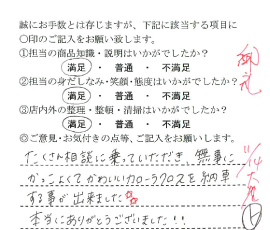 誠にお手数とは存じますが、下記に該当する項目に
〇印のご記入をお願い致します。
①担当の商品知識・説明はいかがでしたか?
満足 ・ 普通 ・ 不満足
②担当の身だしなみ・笑顔・態度はいかがでしたか?
満足 ・ 普通 ・ 不満足
③店内外の整理・整頓・清掃はいかがでしたか?
満足 ・ 普通 ・ 不満足
◎ご意見・お気付きの点等、ご記入をお願いします。
たくさん相談に乗っていただき、無事に
かっこよくてかわいいカローラクロスを納車
する事が出来ました
本当にありがとうございました!!
11/14